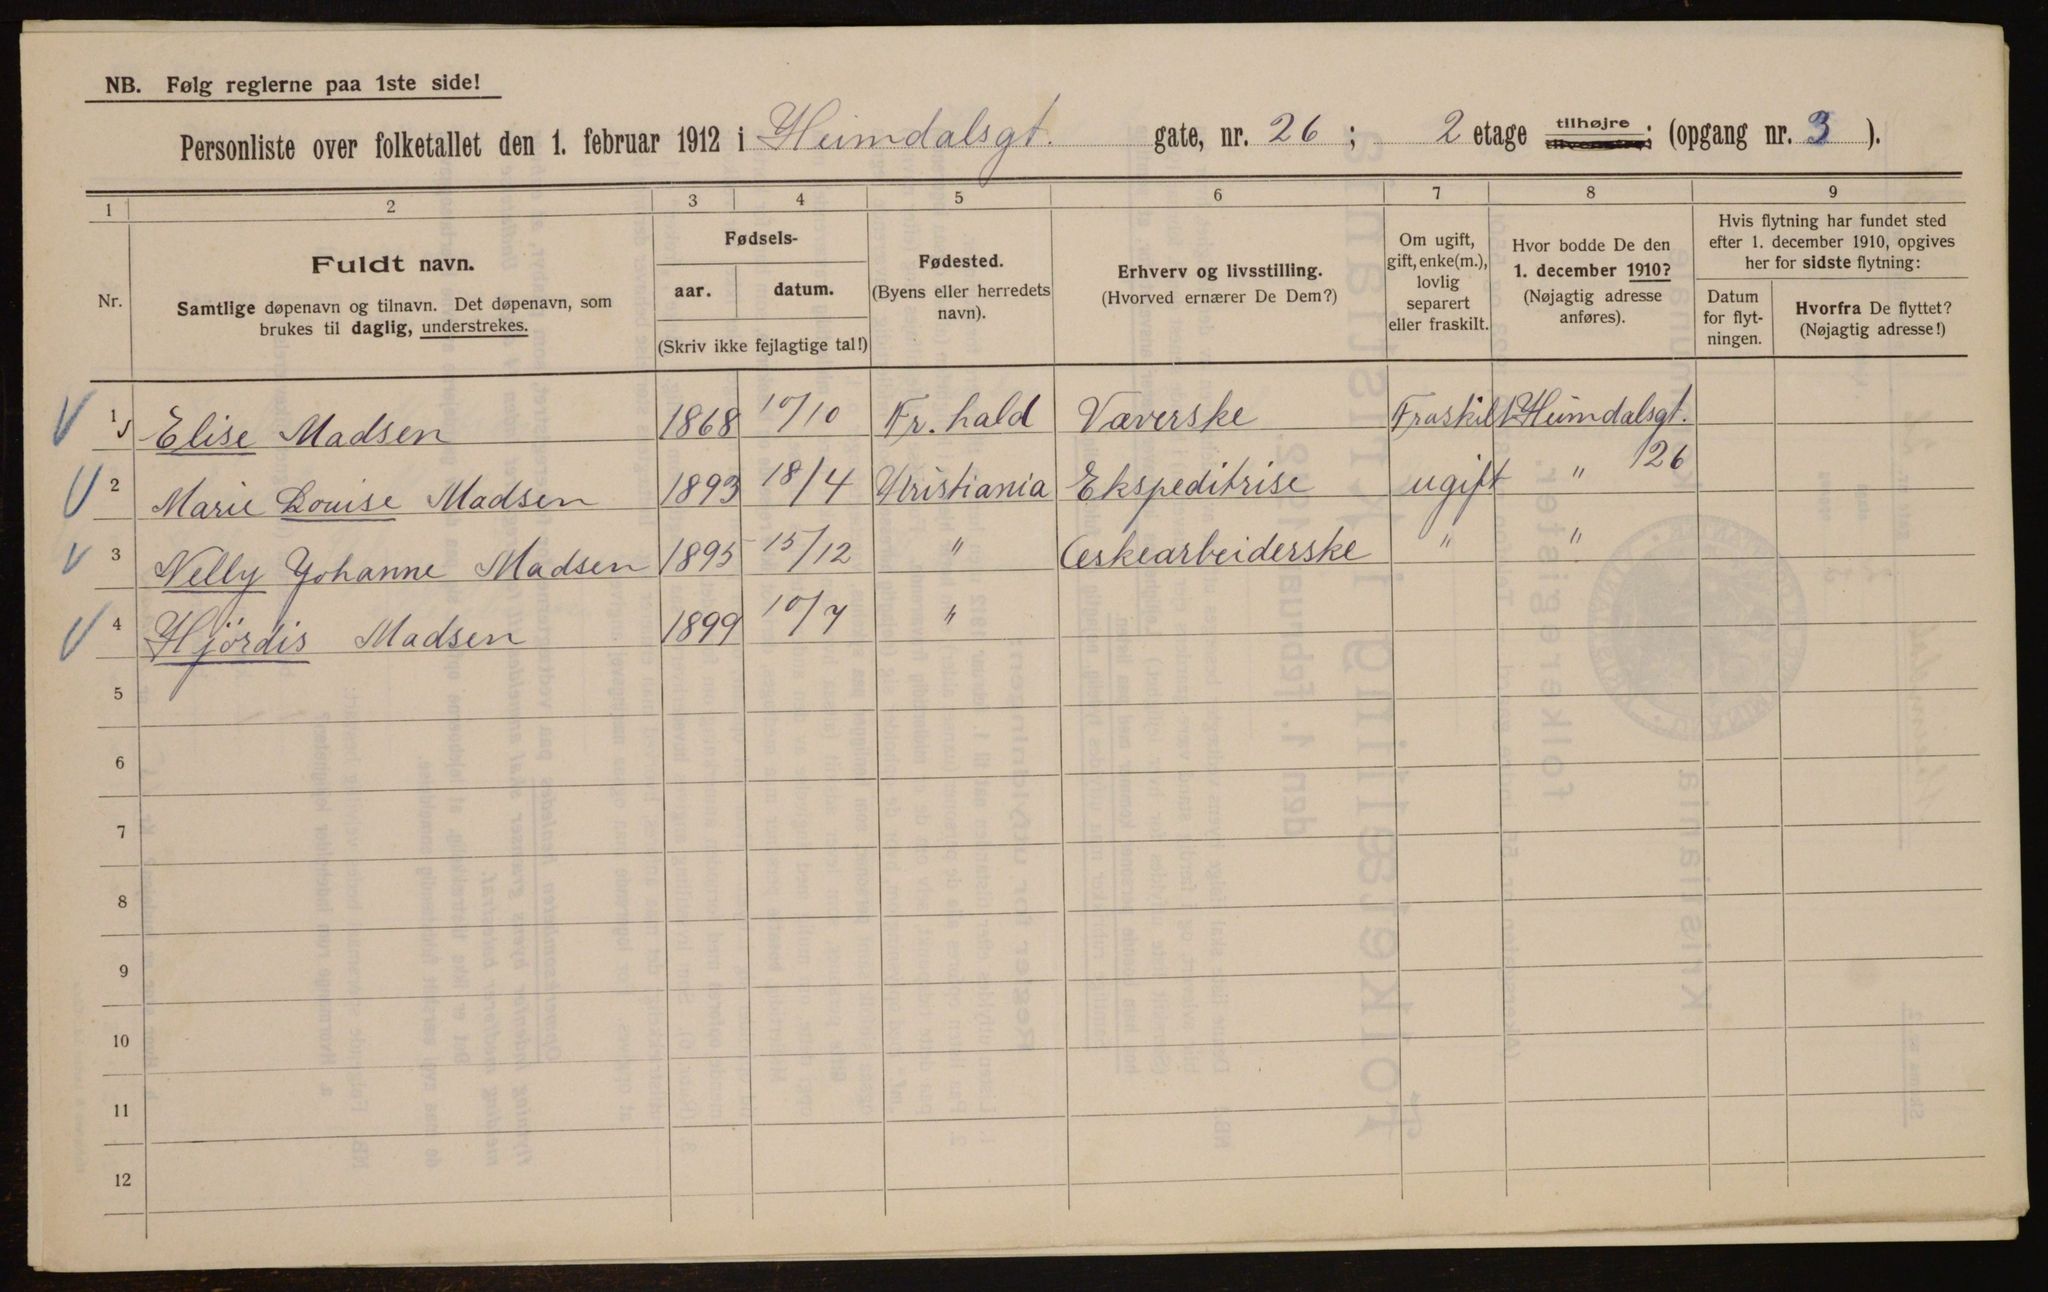 NB. Følg reglerne paa 1ste side!
Personliste over folketallet den 1. februar 1912 i Heimdalsgt. gate, nr. 26 ; 2 etage tilhøjre tilvenstre; (opgang nr. 3 ).
1 2 3 4 5 6 7 8 9
Nr.
Fuldt navn.
Samtlige døpenavn og tilnavn. Det døpenavn, som
brukes til daglig, understrekes.
Fødsels-
aar. datum.
(Skriv ikke fejlagtige tal!)
Fødested.
(Byens eller herredets
navn).
Erhverv og livsstilling.
(Hvorved ernærer De Dem?)
Om ugift,
gift, enke(m.),
lovlig
separert
eller fraskilt.
Hvor bodde De den
1. december 1910?
(Nøjagtig adresse
anføres).
Hvis flytning har fundet sted
efter 1. december 1910, opgives
her for sidste flytning:
Datum
for flyt-
ningen.
Hvorfra De flyttet?
(Nøjagtig adresse!)
1 Elise Madsen 1868 10/10 Fr. hald Væverske Fraskilt Heimdalsgt. 26
2 Marie Louise Madsen 1893 18/4 Kristiania Ekspeditrise ugift "
3 Nelly Johanne Madsen 1895 15/12 " Æskearbeiderske " "
4 Hjørdis Madsen 1899 10/7 "
5
6
7
8
9
10
11
12